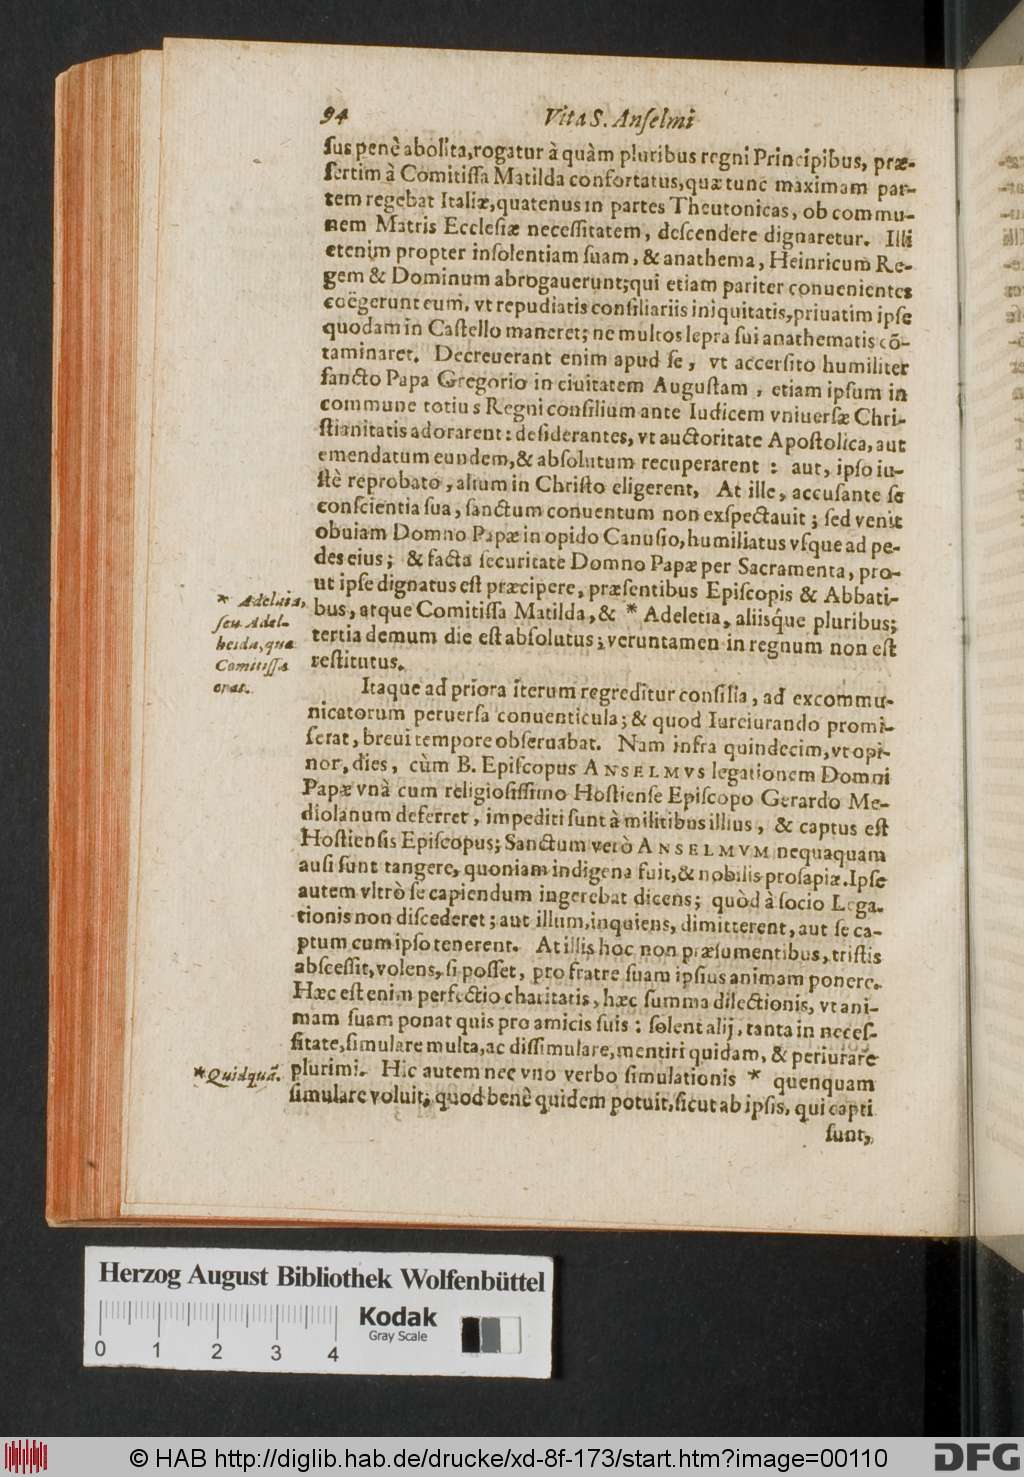 94 Vita S. Anſelmi
ſus penè abolita, rogatur à quàm pluribus regni Principibus, præ-
ſertim à Comitiſſa Matilda confortatus, quæ tunc maximam par-
tem regebat Italiæ, quatenus in partes Theutonicas, ob commu-
nem Matris Eccleſiæ neceſſitatem, deſcendere dignaretur. Illi
etenim propter inſolentiam ſuam, & anathema, Heinricum Re-
gem & Dominum abrogauerunt; qui etiam pariter conuenientes
coëgerunt eum, vt repudiatis conſiliariis iniquitatis, priuatim ipſe
quodam in Caſtello maneret; ne multos lepra ſui anathematis cō-
taminaret. Decreuerant enim apud ſe, vt accerſito humiliter
ſancto Papa Gregorio in ciuitatem Auguſtam, etiam ipſum in
commune totius Regni conſilium ante Iudicem vniuerſæ Chri-
ſtianitatis adorarent: deſiderantes, vt auctoritate Apoſtolica, aut
emendatum eundem, & abſolutum recuperarent: aut, ipſo iu-
ſtè reprobato, alium in Chriſto eligerent. At ille, accuſante ſe
conſcientia ſua, ſanctum conuentum non exſpectauit; ſed venit
obuiam Domno Papæ in opido Canuſio, humiliatus vſque ad pe-
des eius; & facta ſecuritate Domno Papæ per Sacramenta, pro-
ut ipſe dignatus eſt præcipere, præſentibus Epiſcopis & Abbati-
bus, atque Comitiſſa Matilda, & * Adeleria, aliisq́ue pluribus;
tertia demum die eſt abſolutus; veruntamen in regnum non eſt
reſtitutus.
* Adelaia,
ſeu Adel-
heida, quæ
Comitiſſa
erat.
Itaque ad priora iterum regreditur conſilia, ad excommu-
nicatorum peruerſa conuenticula; & quod Iurciurando promi-
ſerat, breui tempore obſeruabat. Nam infra quindecim, vt opi-
nor, dies, cùm B. Epiſcopus ANSELMVS legationem Domni
Papæ vnà cum religioſiſſimo Hoſtienſe Epiſcopo Gerardo Me-
diolanum deferret, impediti ſunt à militibus illius, & captus eſt
Hoſtienſis Epiſcopus; Sanctum verò ANSELMVM nequaquam
auſi ſunt tangere, quoniam indigena fuit, & nobilis proſapiæ. Ipſe
autem vltrò ſe capiendum ingerebat dicens; quòd à ſocio Lega-
tionis non diſcederet; aut illum, inquiens, dimitterent, aut ſe ca-
ptum cum ipſo tenerent. At illis hoc non præſumentibus, triſtis
abſceſſit, volens, ſi poſſet, pro fratre ſuam ipſius animam ponere.
Hæc eſt enim perfectio charitatis, hæc ſumma dilectionis, vt ani-
mam ſuam ponat quis pro amicis ſuis: ſolent alij, tanta in neceſ-
ſitate, ſimulare multa, ac diſſimulare, mentiri quidam, & periurare
plurimi. Hic autem nec vno verbo ſimulationis * quenquam
ſimulare voluit; quod benè quidem potuit, ſicut ab ipſis, qui capti
* Quidquā.
ſunt,
Herzog August Bibliothek Wolfenbüttel
Kodak
Gray Scale
0 1 2 3 4
© HAB http://diglib.hab.de/drucke/xd-8f-173/start.htm?image=00110
DFG